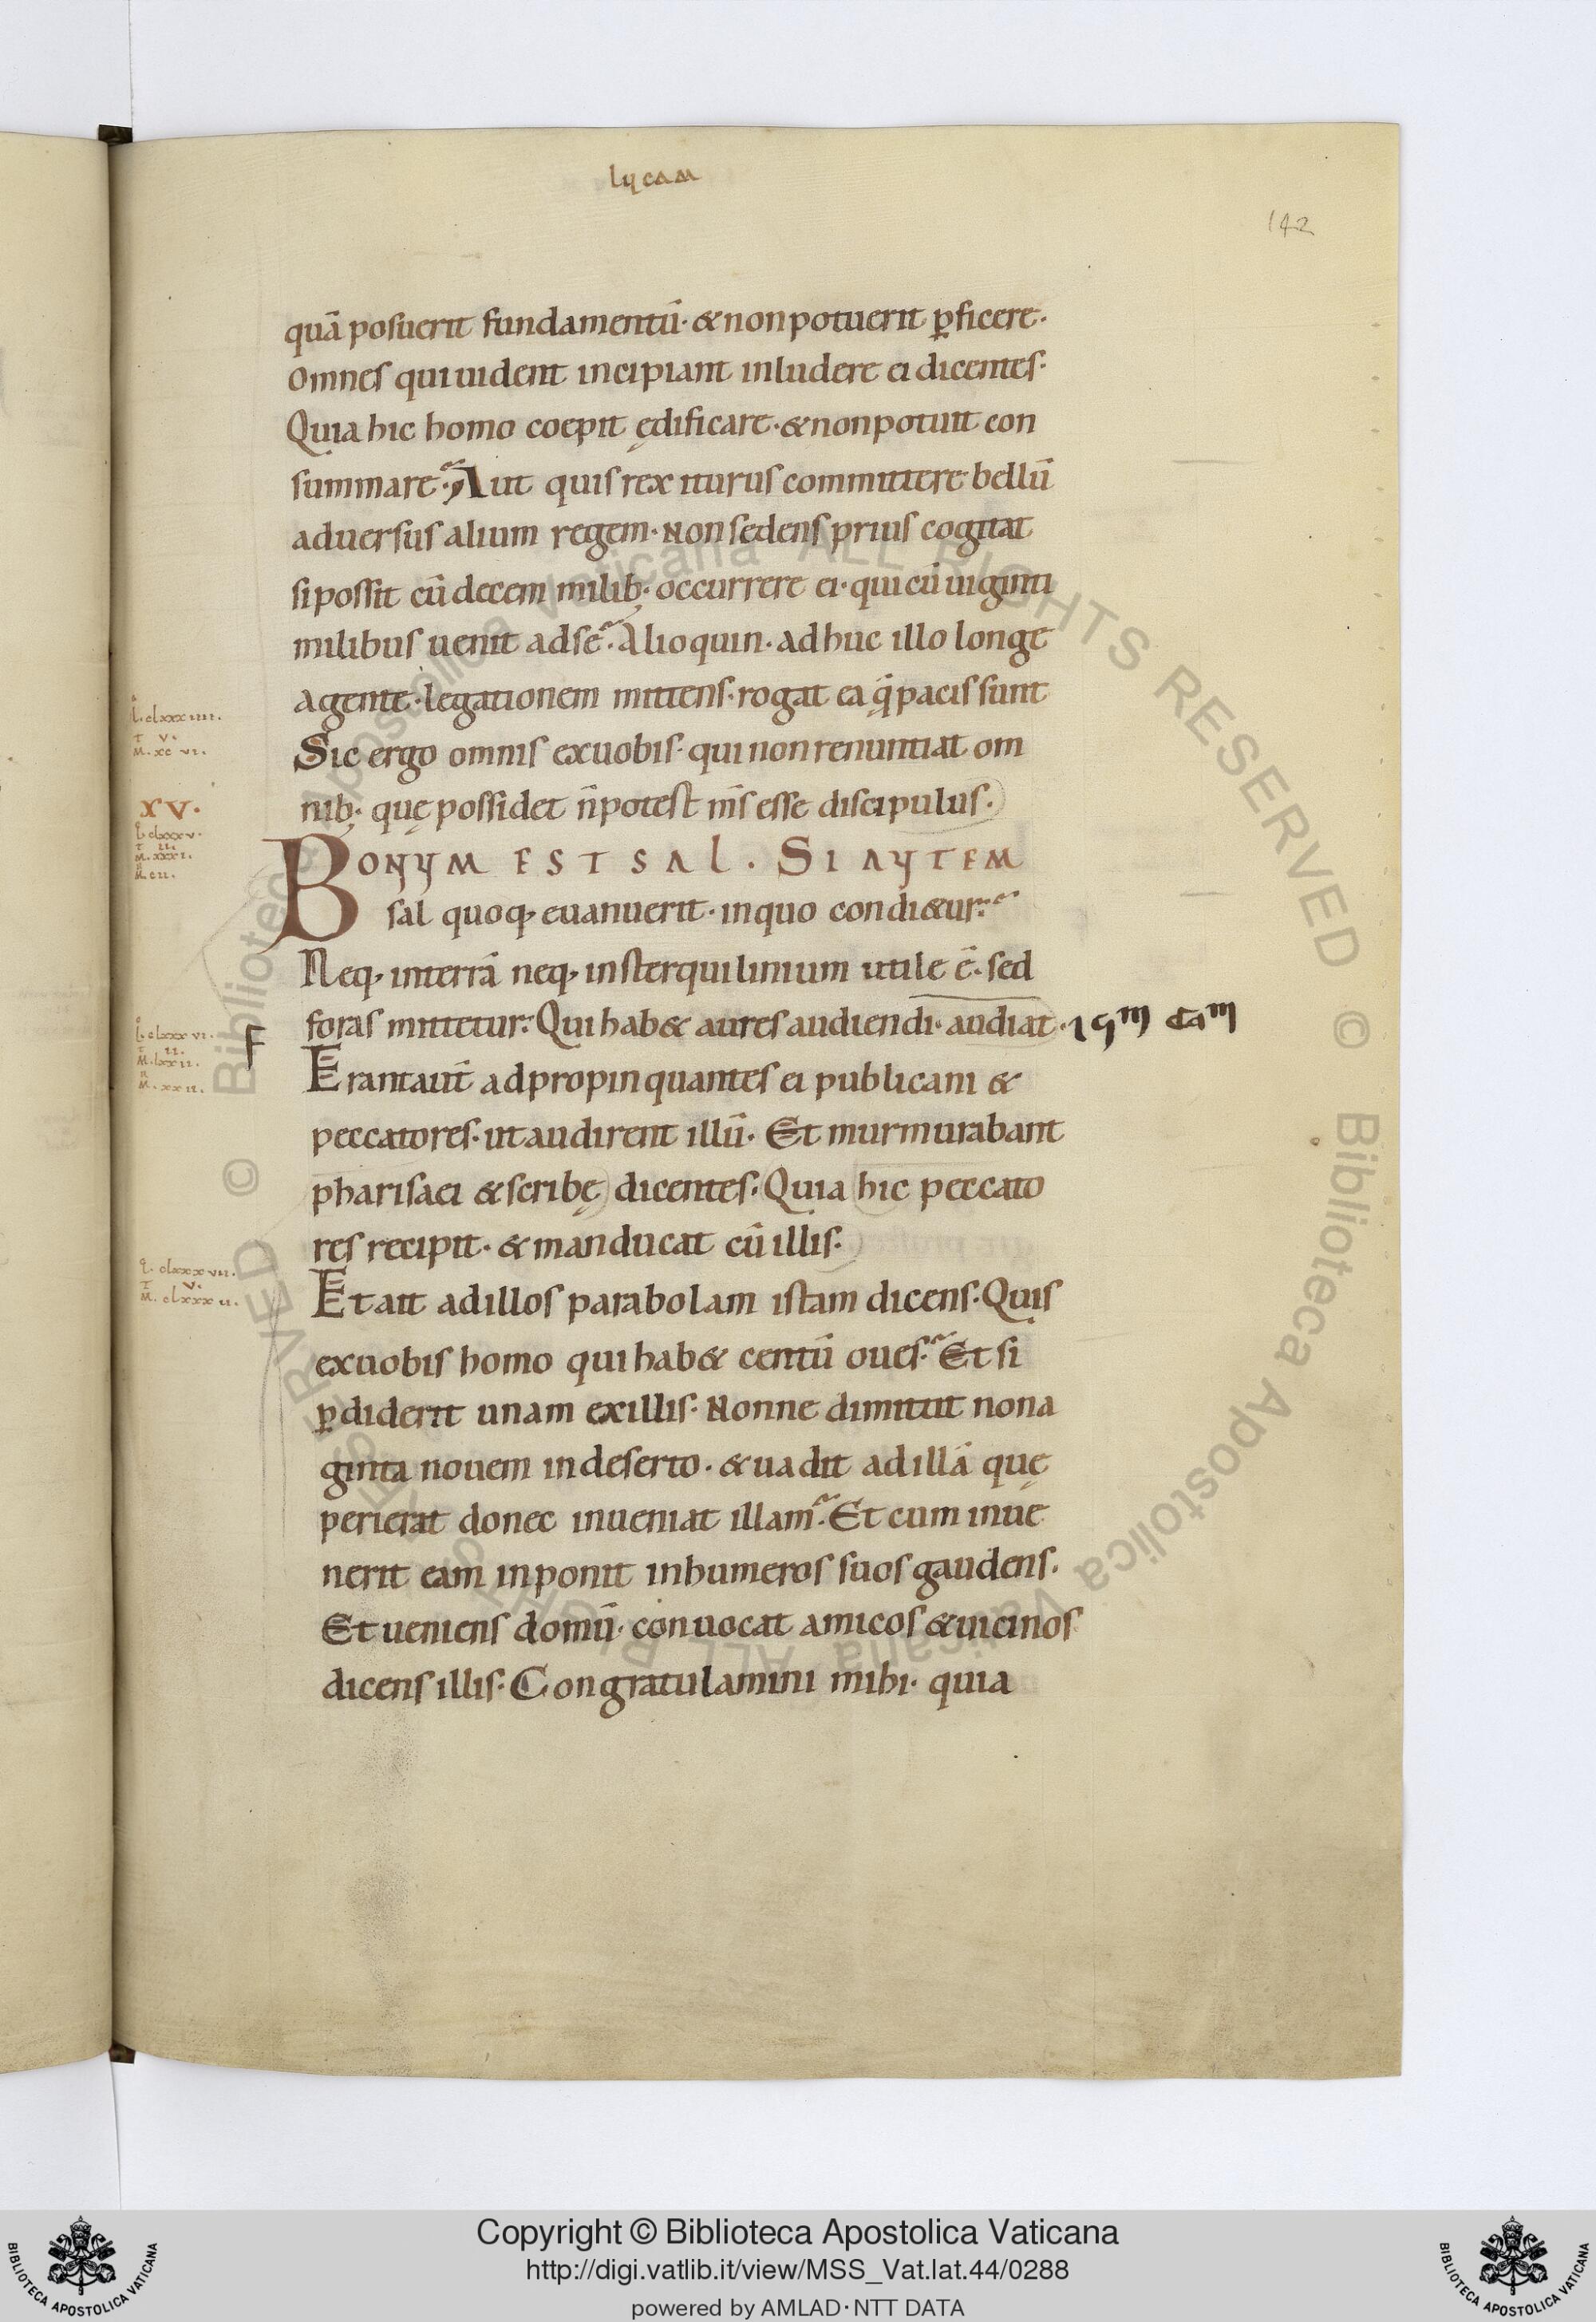 lucam
142
quā posuerit fundamentū· & non potuerit ꝑficere·
Omnes qui uident incipiant inludere ei dicentes·
Quia hic homo coepit ędificare· & non potuit con
summare· Aut quis rex iturus committere bellū
aduersus alium regem· Non sedens prius cogitat
si possit cū decem milib; occurrere ei· qui cū uiginti
milibus uenit ad se· Alioquin· adhuc illo longe
agente· legationem mittens· rogat ea q̄ pacis sunt
l. clxxxiiii.
Sic ergo omnis ex uobis· qui non renuntiat om
T v.
M. xc vi.
nib; quę possidet n̄ potest m̄s esse discipulus·
XV.
l. clxxxv.
T ii.
M. xxxi.
M. cii.
BONUM EST SAL. SI AUTEM
sal quoq; euanuerit· in quo condi&ur·
Neq; in terrā neq; in sterquilinium utile ē· sed
foras mittetur· Qui hab& aures audiendi· audiat·
F
l. clxxxvi.
T ii.
M. lxxii.
M. xxii.
Erant aut̄ adpropinquantes ei publicani &
peccatores· ut audirent illū· Et murmurabant
pharisaei & scribę dicentes· Quia hic peccato
res recipit· & manducat cū illis·
l. clxxxvii.
T v.
M. clxxxii.
Et ait ad illos parabolam istam dicens· Quis
ex uobis homo qui hab& centū oues· Et si
ꝑdiderit unam ex illis· Nonne dimittit nona
ginta nouem in deserto· & uadit ad illā quę
perierat donec inueniat illam· Et cum inue
nerit eam inponit in humeros suos gaudens·
Et ueniens domū· conuocat amicos & uicinos
dicens illis· Congratulamini mihi· quia
© Biblioteca Apostolica Vaticana ALL RIGHTS RESERVED
© Biblioteca Apostolica Vaticana ALL RIGHTS RESERVED
Copyright © Biblioteca Apostolica Vaticana
http://digi.vatlib.it/view/MSS_Vat.lat.44/0288
powered by AMLAD·NTT DATA
BIBLIOTECA APOSTOLICA VATICANA
BIBLIOTECA APOSTOLICA VATICANA